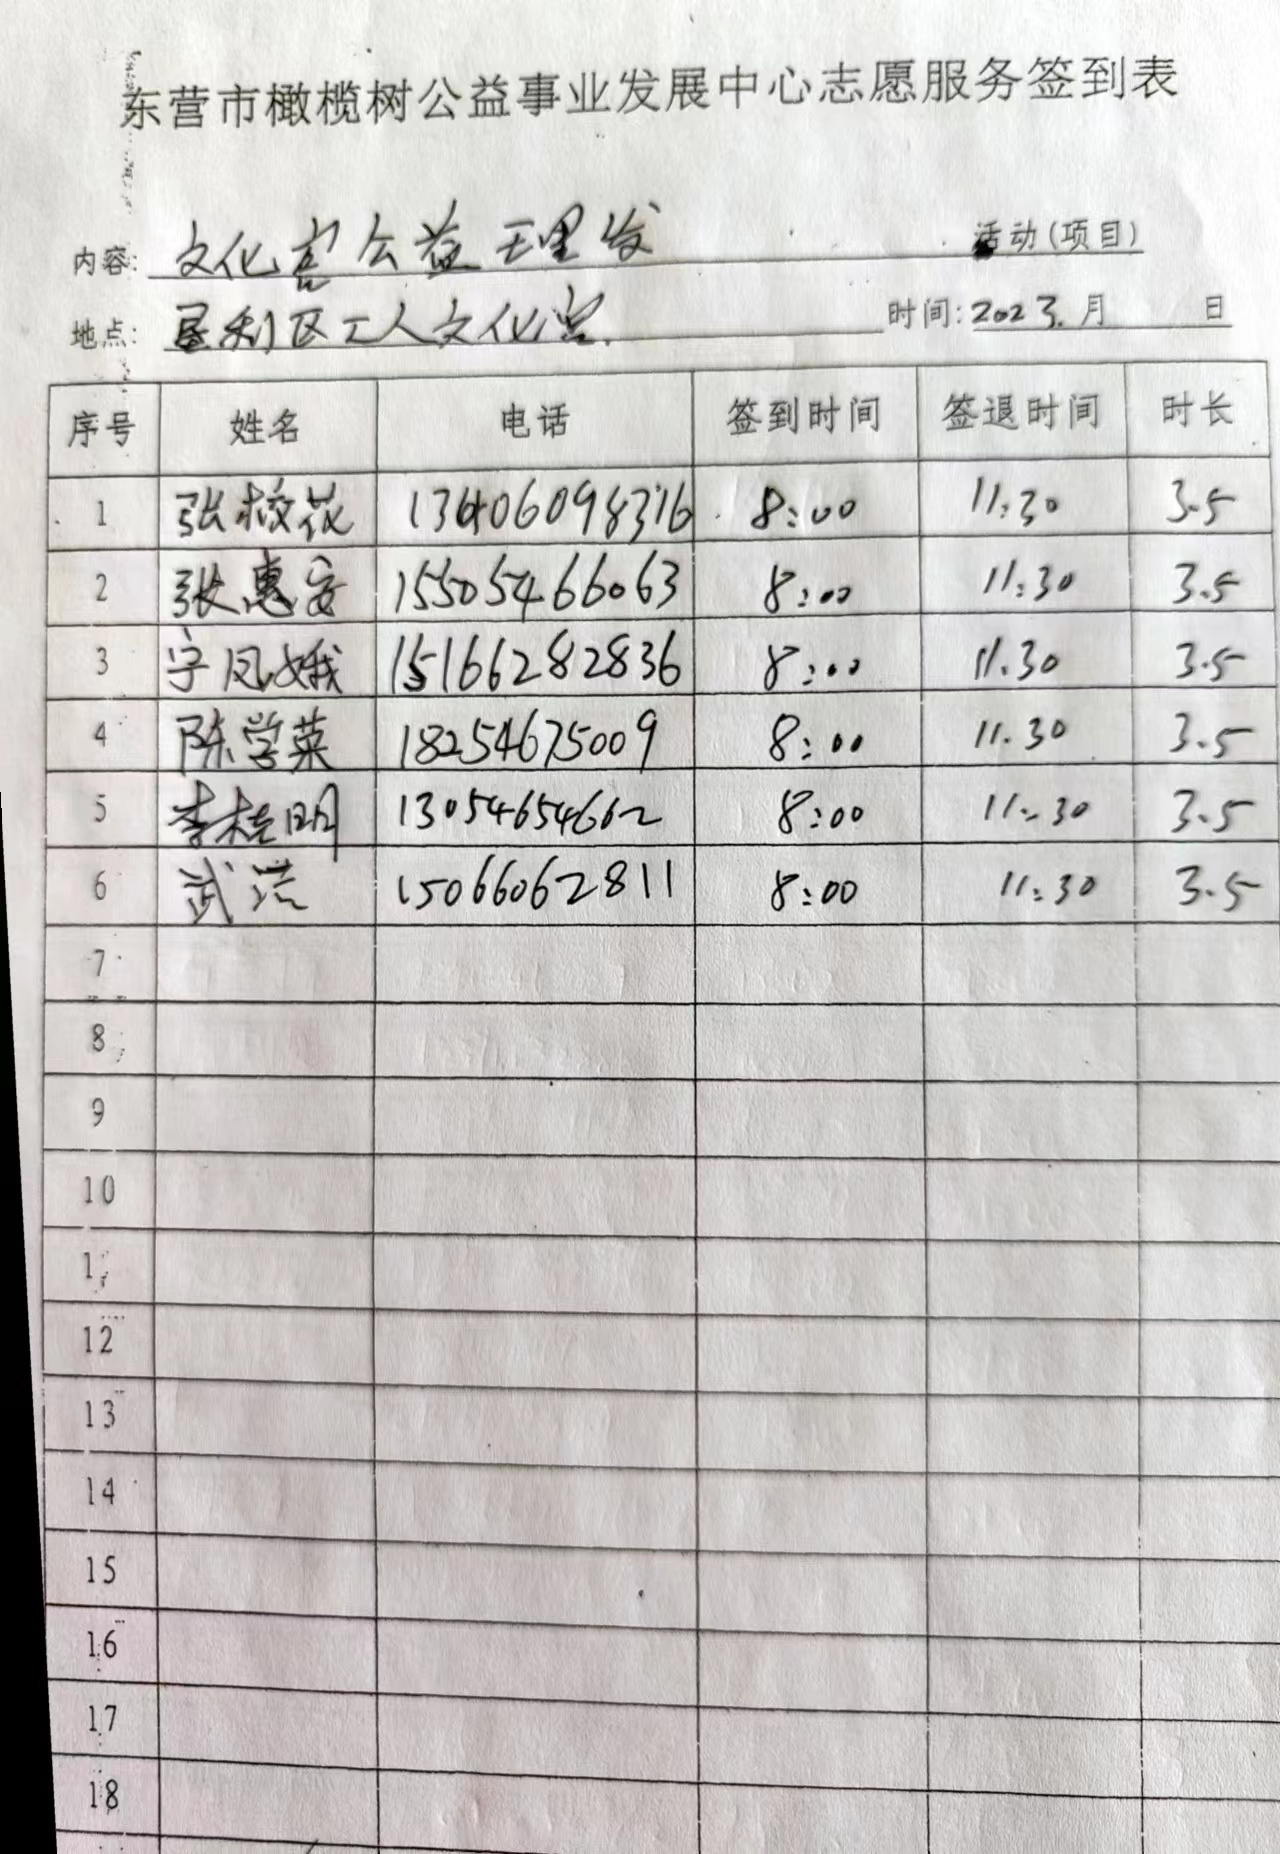 东营市橄榄树公益事业发展中心志愿服务签到表
内容: 文化宫公益理发 活动(项目)
地点: 垦利区工人文化宫. 时间: 2023. 月 日
序号 姓名 电话 签到时间 签退时间 时长
1 张校花 8:00 11:30 3.5
2 张惠安 15505466063 8:00 11:30 3.5
3 宁凤娥 15166282836 8:00 11.30 3.5
4 陈学英 18254675009 8:00 11.30 3.5
5 李桂明 13054654662 8:00 11:30 3.5
6 武洁 15066062811 8:00 11:30 3.5
7
8
9
10
12
13
14
15
16
17
18